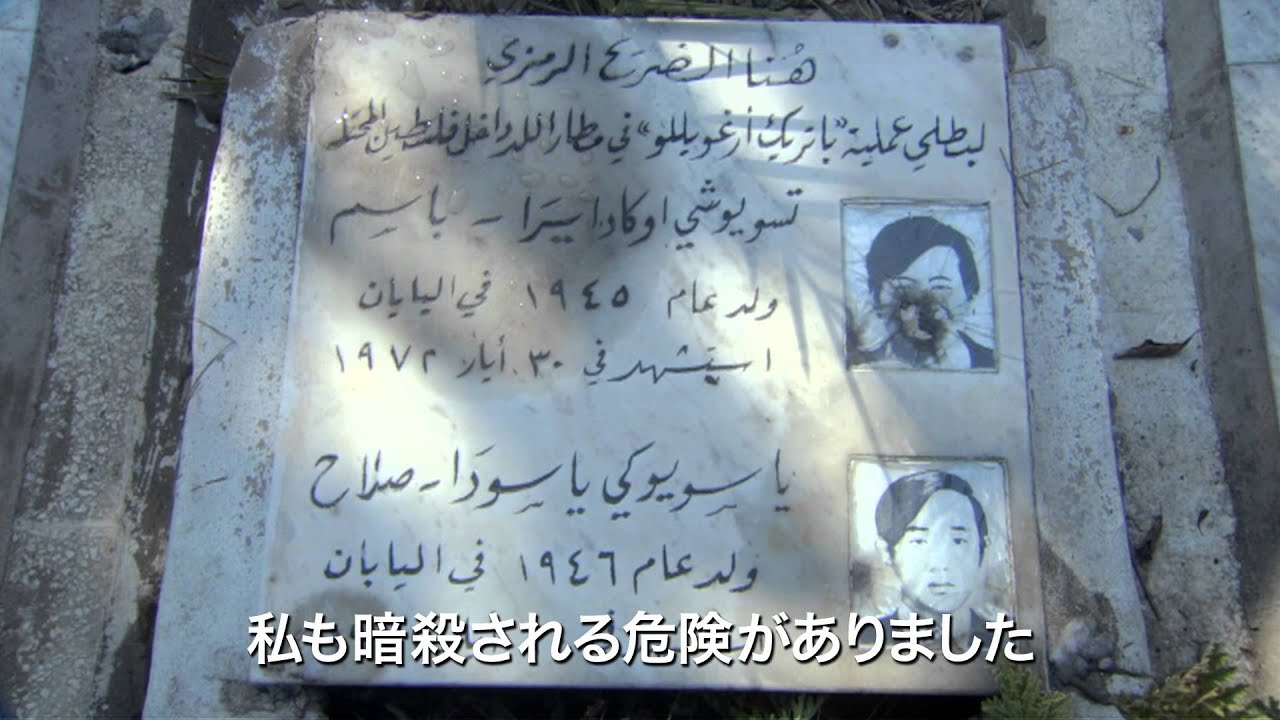 هُنا الضريح الرمزي
لبطلي عملية «باتريك أرغويللو» في مطار اللد داخل فلسطين المحتلة
تسويوشي اوكادايِيرَا - باسِم
ولد عام ١٩٤٥ في اليابان
استشهد في ٣٠ أيار ١٩٧٢
ياسِويوكي ياسِودَا - صلاح
ولد عام ١٩٤٦ في اليابان
私も暗殺される危険がありました